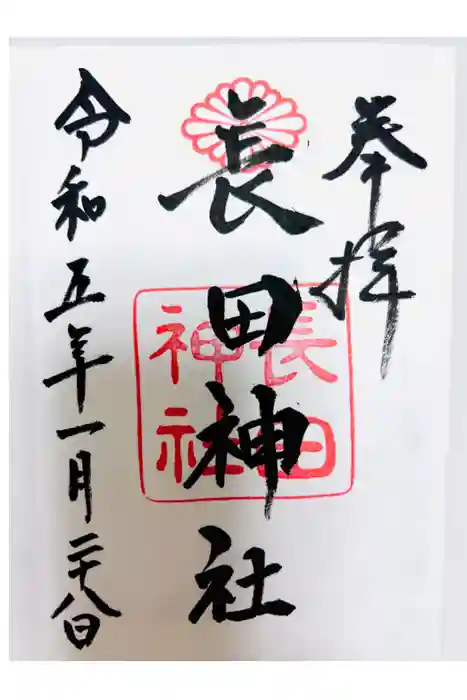 奉拝
長田神社
令和五年一月二十八日
長田
神社